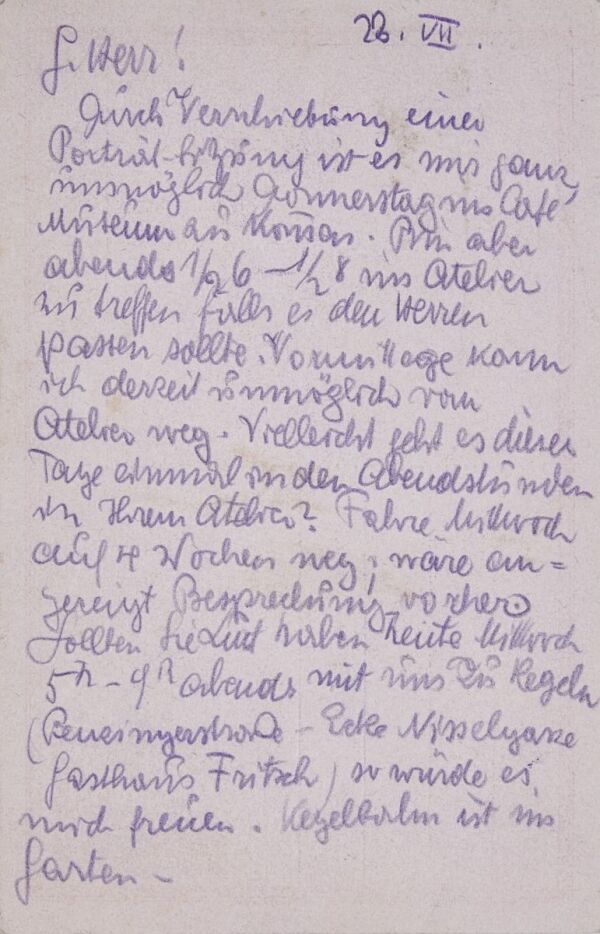 22. VII.
G. Herr!
Durch Verschiebung einer
Porträt-Sitzung ist es mir ganz
unmöglich Donnerstag ins Café
Museum zu kommen. Bin aber
abends 1/2 6 – 1/2 8 im Atelier
zu treffen falls es den Herren
passen sollte. Vormittage kann
ich derzeit unmöglich vom
Atelier weg. Vielleicht geht es dieser
Tage einmal in den Abendstunden
in Ihrem Atelier? Fahre Mittwoch
auf 4 Wochen weg; wäre an=
gezeigt Besprechung vorher
Sollten Sie Lust haben heute Mittwoch
5h – 9h abends mit uns zu Kegeln
(Penzingerstraße – Ecke Nisselgasse
Gasthaus Fritsch) so würde es
mich freuen. Kegelbahn ist im
Garten –